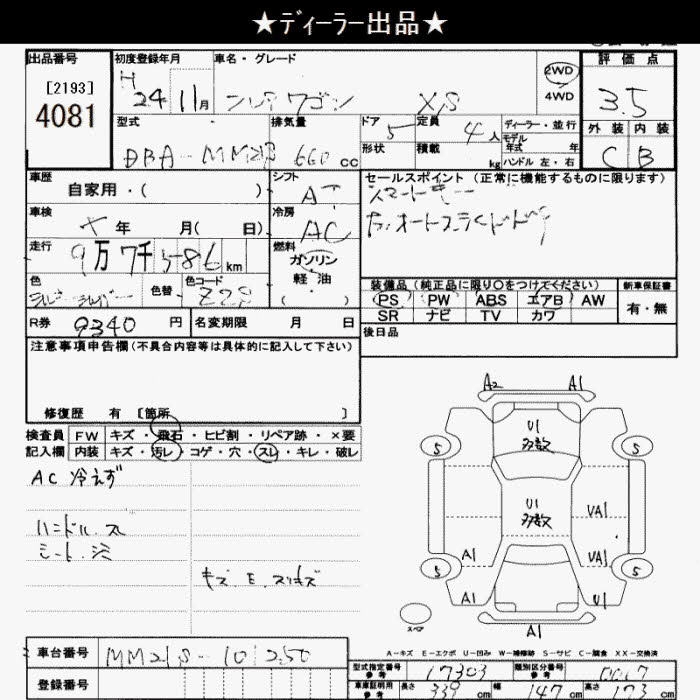 ★ディーラー出品★
出品番号 初度登録年月 車名・グレード 2WD 評価点
[2193] H
4081 24 11月 フレアワゴン XS 4WD 3.5
型式 排気量 ドア 5 定員 4人 ディーラー・並行 外装 内装
DBA-MM21S 660cc 形状 積載 kg モデル年式 年 ハンドル 左・右 C B
車歴 シフト セールスポイント (正常に機能するものに限ります)
自家用・( ) AT スマートキー
車検 冷房
年 月( 日) AC オートスライドドア
走行 燃料
9万7千586km ガソリン
色 色替 色コード 軽油 装備品 (純正品に限り○をつけてください) 新車保証書
シルバー Z2S ( ) PS PW ABS エアB AW 有・無
R券 9340円 名変期限 月 日 SR ナビ TV カワ
注意事項申告欄(不具合内容等は具体的に記入して下さい) 後日品
修復歴 有 [箇所 ]
検査員 FW キズ・飛石・ヒビ割・リペア跡・×要
記入欄 内装 キズ・汚レ・コゲ・穴・スレ・キレ・破レ
AC 冷えず
ハンドル.ス
シート.シミ
キズ.E.スリキズ
A2 A1
U1
多数
5 5
U1
多数
UA1
A1 UA1
5 5
A1 U1
スペア
A1
A-キズ E-エクボ U-凹み W-補修跡 S-サビ C-腐食 XX-交換済
車台番号 MM21S-101250
型式指定番号 参考 17303 類別区分番号 参考
登録番号 車庫証明用 参考 長さ 339cm 幅 147cm 高さ cm